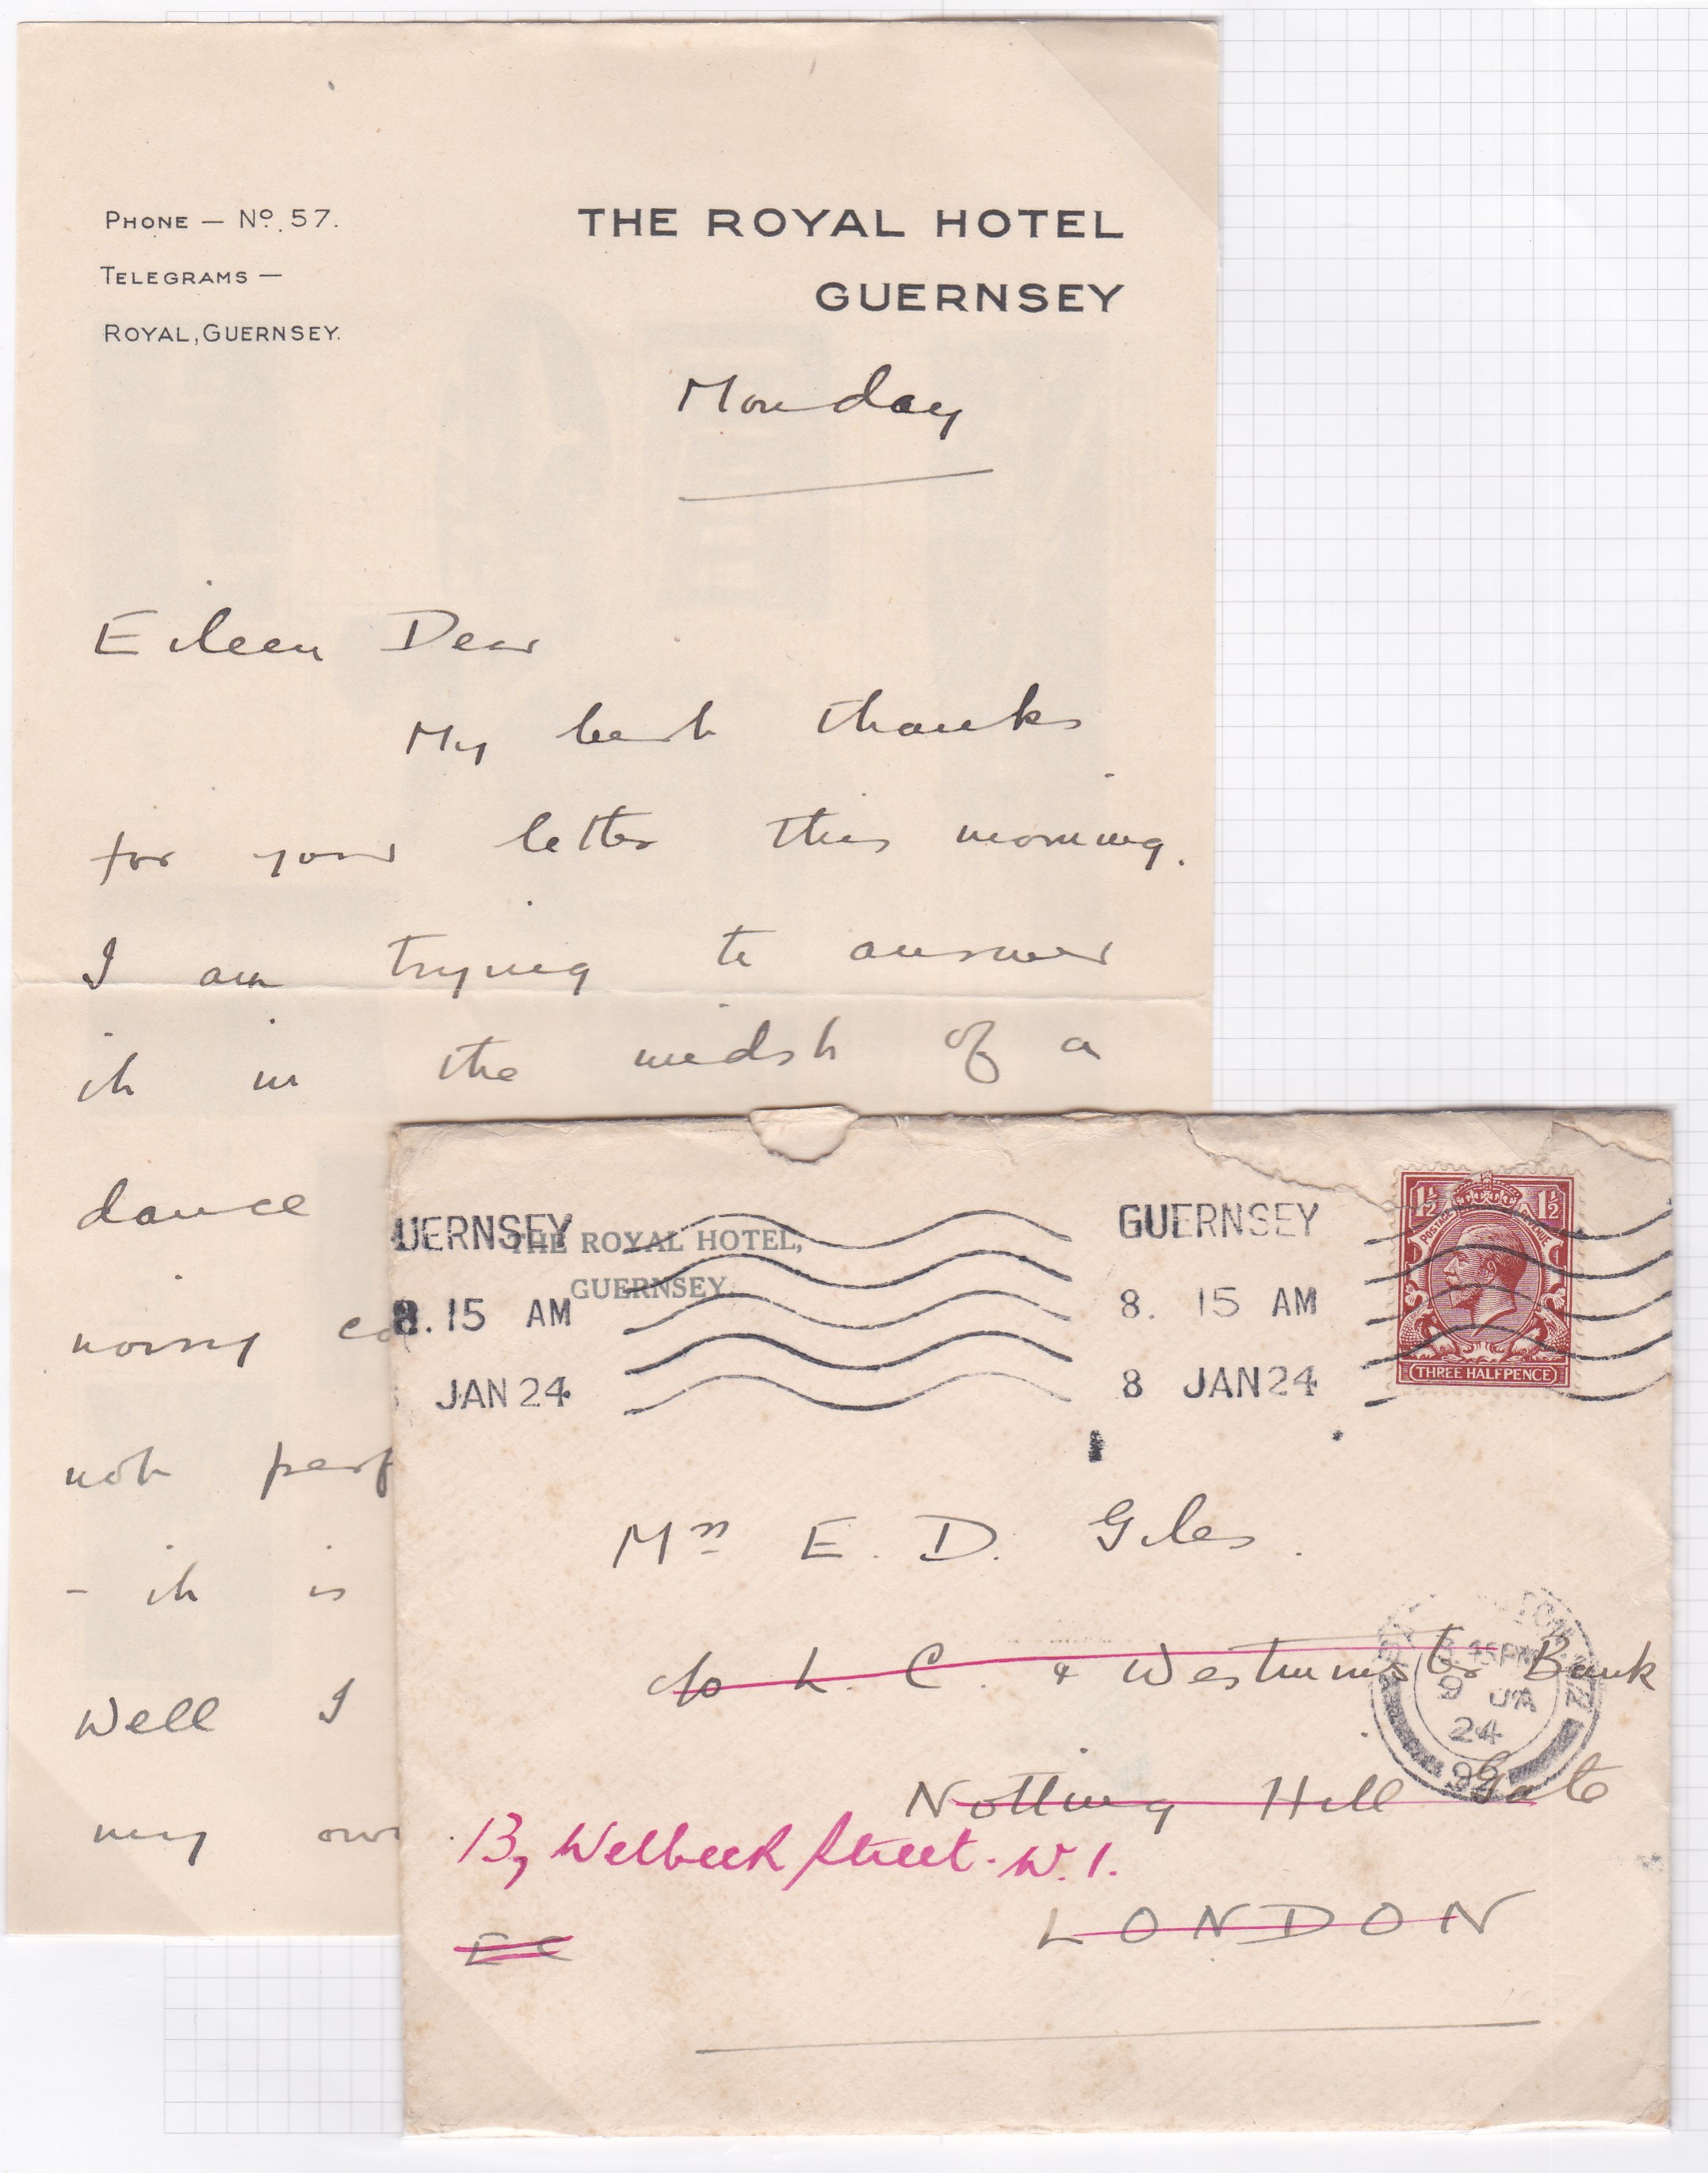 PHONE — Nº 57.
TELEGRAMS —
ROYAL, GUERNSEY.
THE ROYAL HOTEL
GUERNSEY
Monday
Eileen Dear
My best thanks
for your letter this morning.
I am trying to answer
it in the midst of a
dance
noisy
not perf
- it is
Well I
my own
UERNSEY
8.15 AM
JAN 24
THE ROYAL HOTEL,
GUERNSEY.
GUERNSEY
8. 15 AM
8 JAN 24
1½ 1½
POSTAGE REVENUE
THREE HALFPENCE
Mrs E. D. Giles.
c/o L. C. & Westminster Bank
Notting Hill Gate
13, Welbeck Street. W.1.
LONDON
E C
8.45 PM
9 JA
24